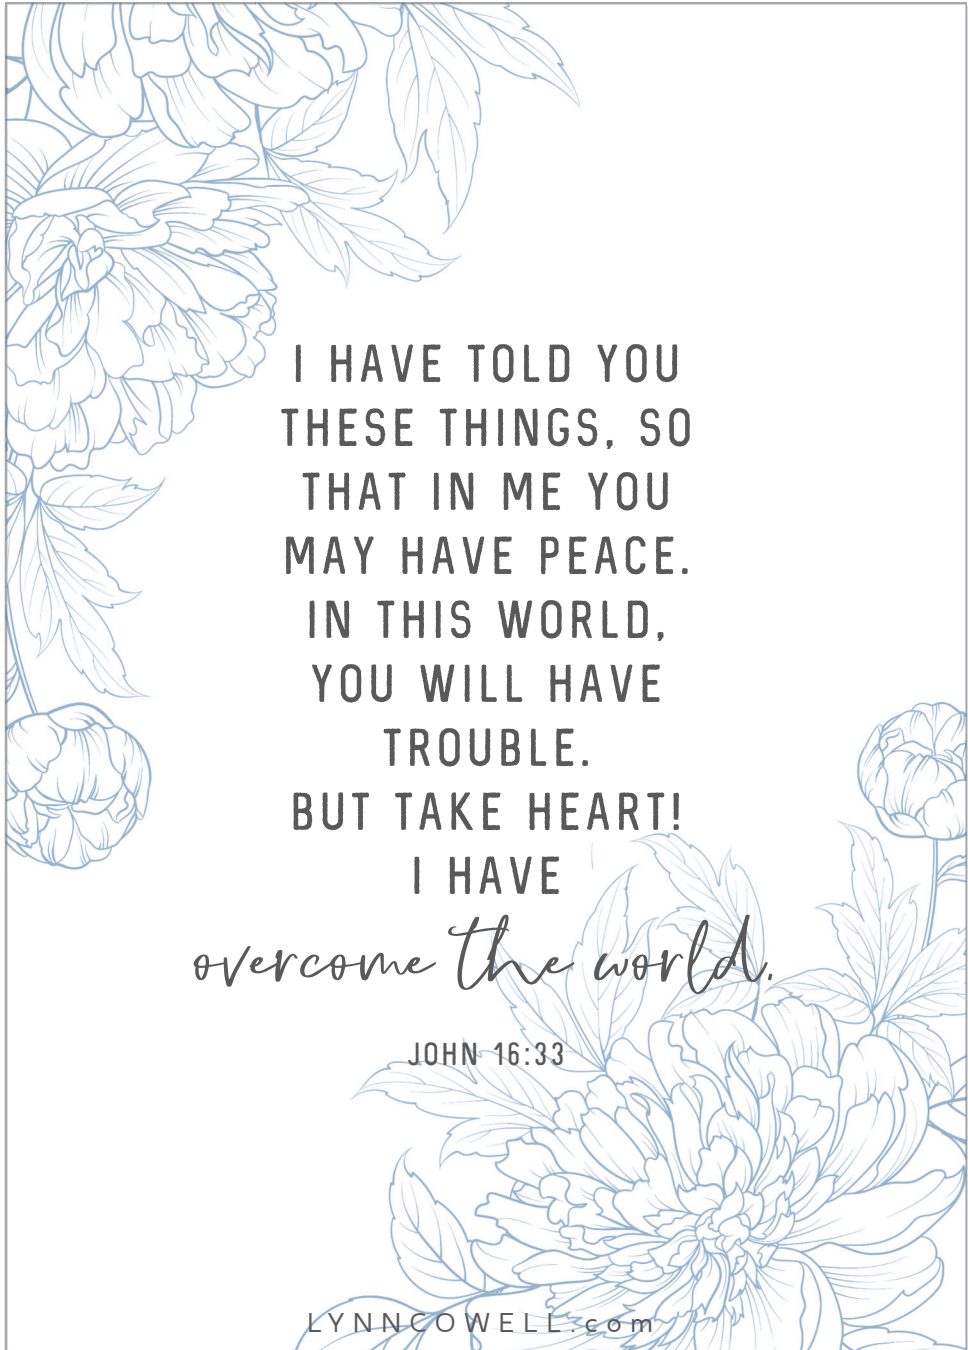 I HAVE TOLD YOU
THESE THINGS, SO
THAT IN ME YOU
MAY HAVE PEACE.
IN THIS WORLD,
YOU WILL HAVE
TROUBLE.
BUT TAKE HEART!
I HAVE
overcome the world.
JOHN 16:33
LYNNCOWELL.com